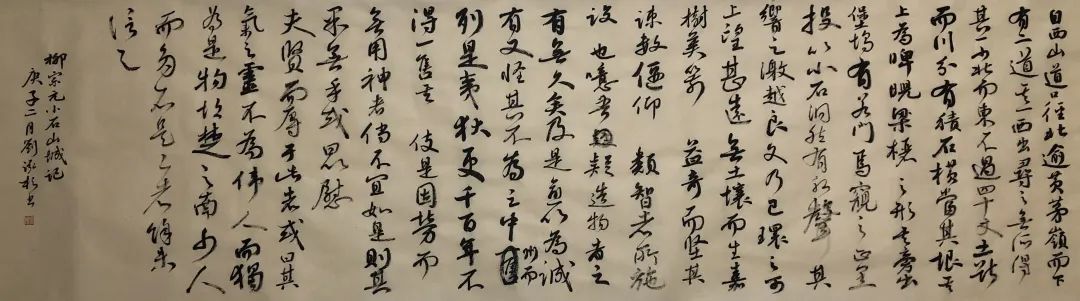 自西山道口徑北逾黄茅嶺而下
有二道其一西出尋之無所得
其一少北而東不過四十丈土斷
而川分有積石橫當其垠其
上為睥睨梁欐之形其旁出
堡塢有若門焉窺之正黑
投以小石洞然有水聲其
響之激越良久乃已環之可
上望甚遠無土壤而生嘉
樹美箭益奇而堅其
疎數偃仰類智者所施
設也噫吾疑造物者之
有無久矣及是愈以為誠
有又怪其不為之中州而
列是夷狄更千百年不
得一售其伎是固勞而
無用神者倘不宜如是則其
果無乎或曰以慰
夫賢而辱于此者或曰其
氣之靈不為偉人而獨
為是物故楚之南少人
而多石是二者余未
信之
柳宗元小石山城記
庚子二月劉書